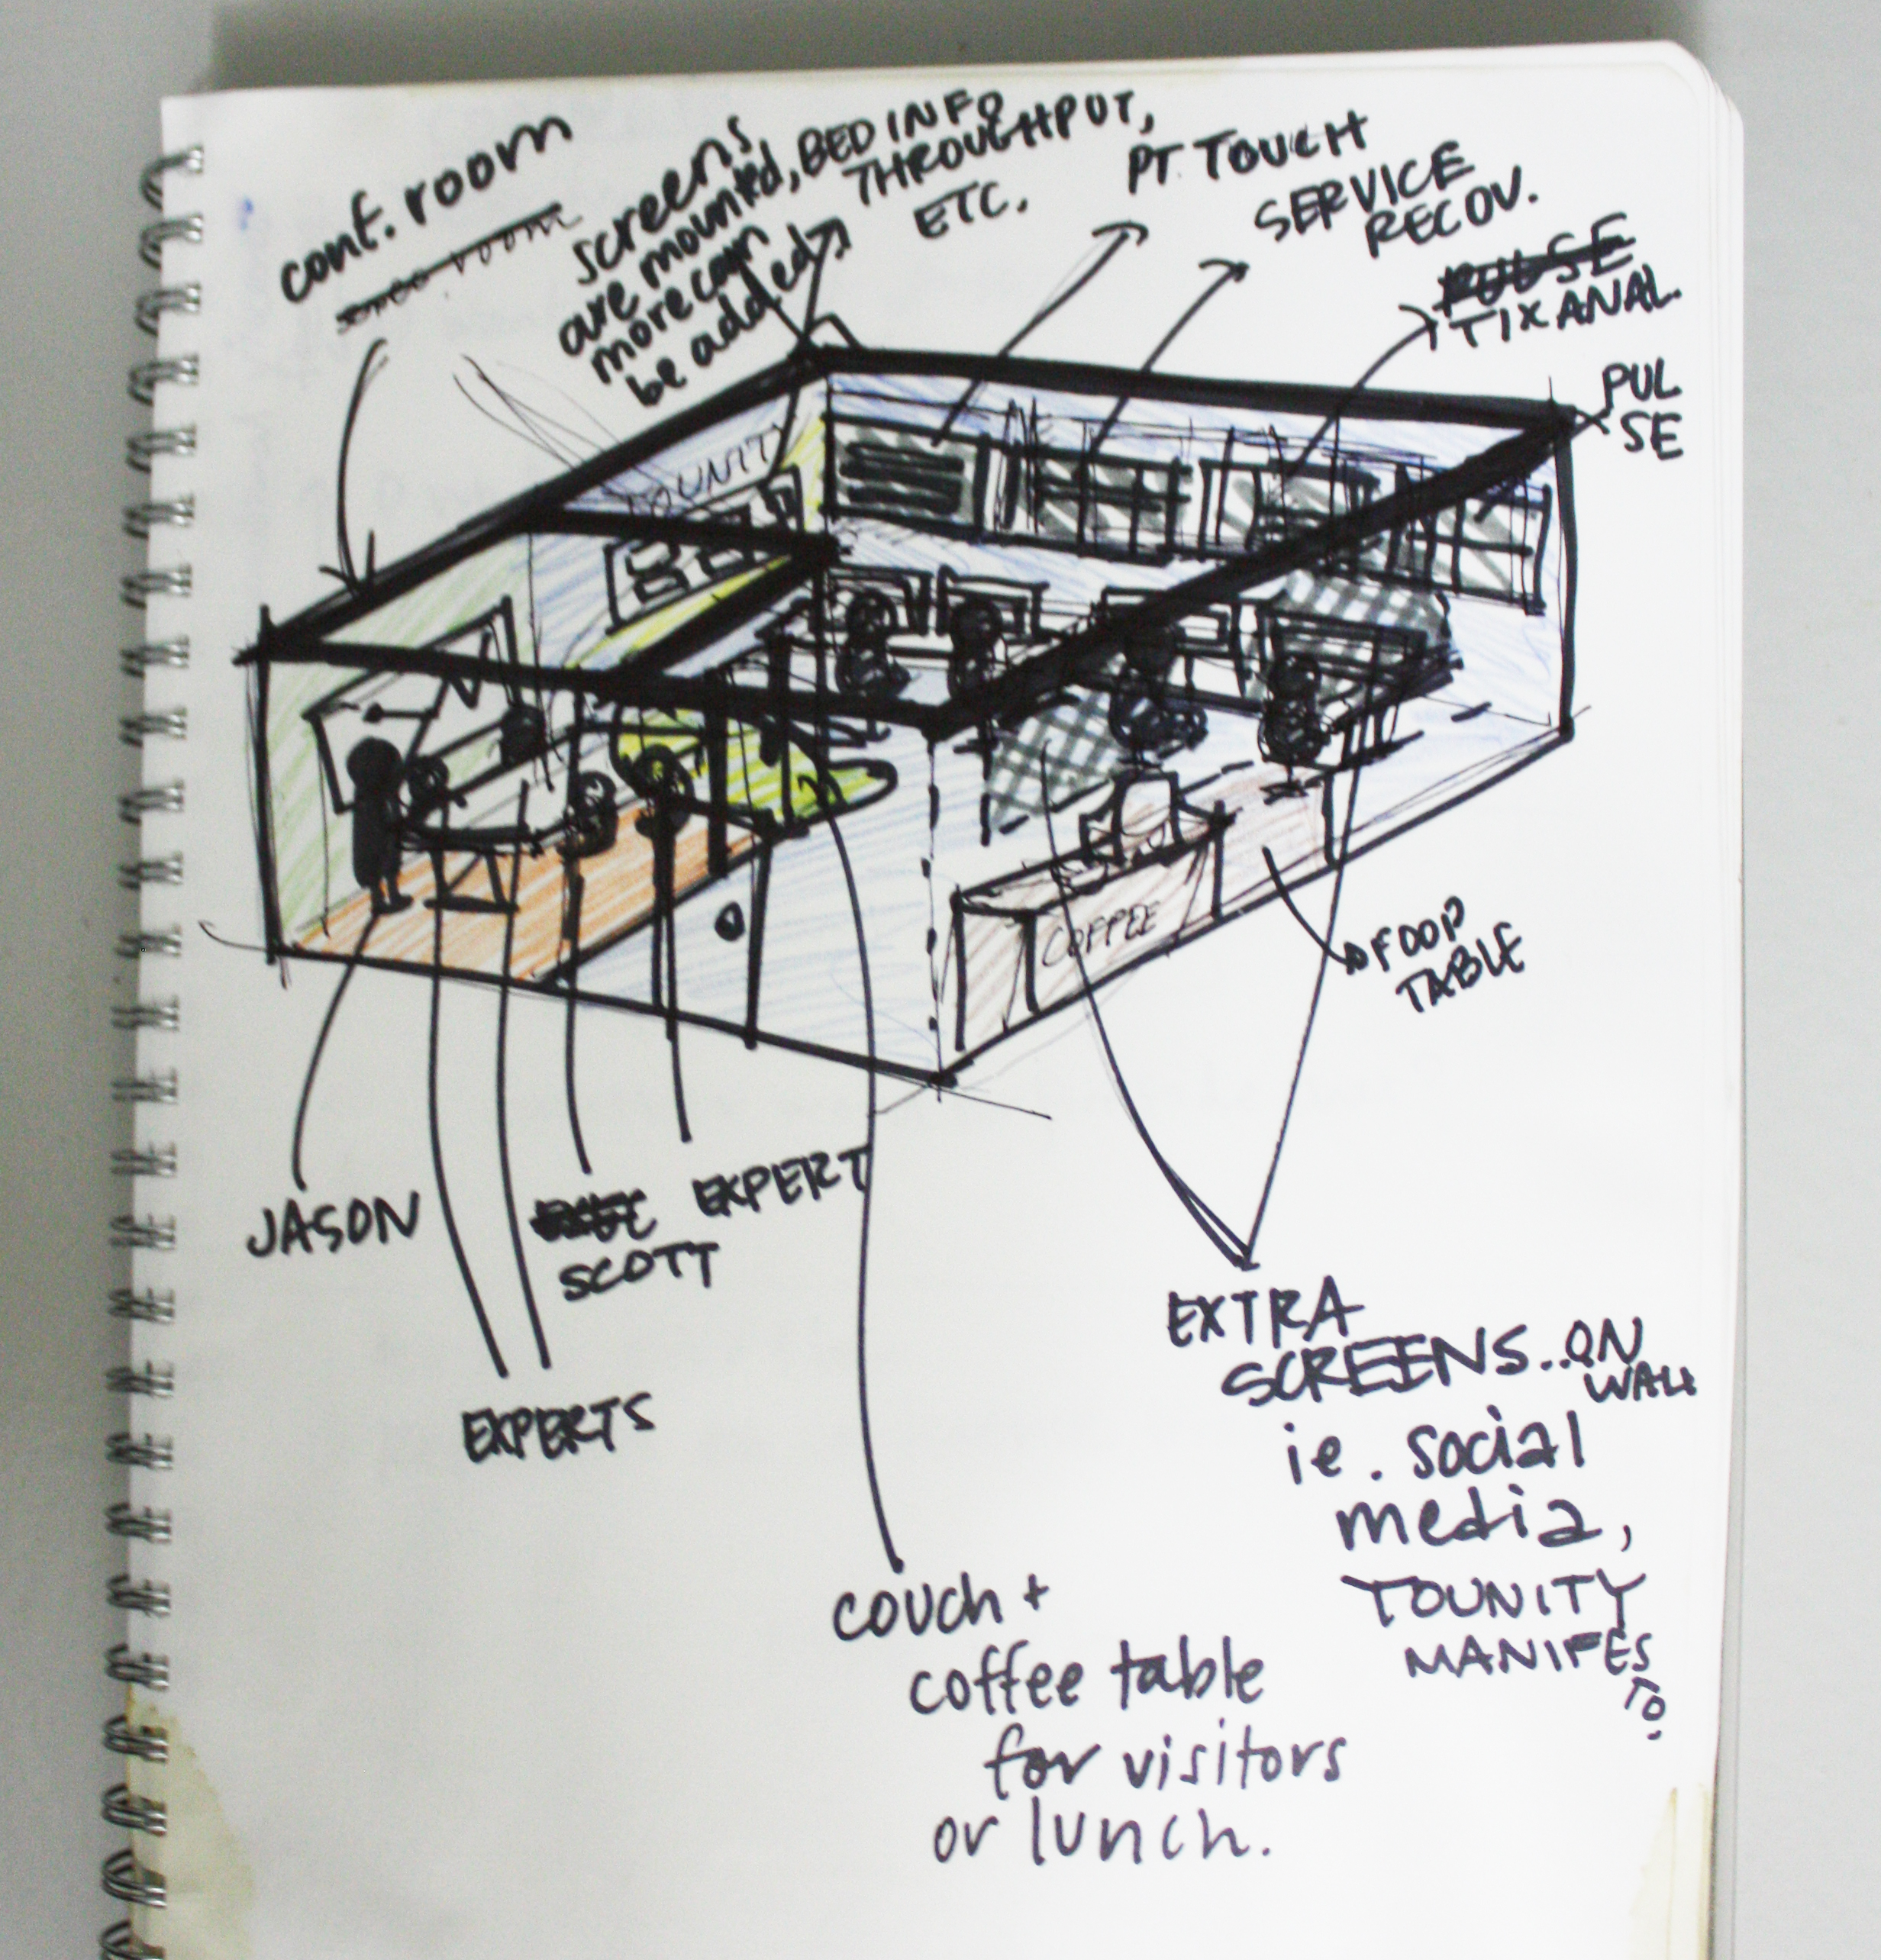 conf. room
room
screens
are mounted,
more can
be added
BED INFO
THROUGHPUT,
ETC.
PT. TOUCH
SERVICE
RECOV.
PULSE
TIX ANAL.
PUL
SE
TOUNITY
COFFEE
FOOD
TABLE
JASON
EXPERTS
SCOTT
EXPERT
EXTRA
SCREENS.. ON
WALL
ie. social
media,
TOUNITY
MANIFES
TO.
couch +
coffee table
for visitors
or lunch.